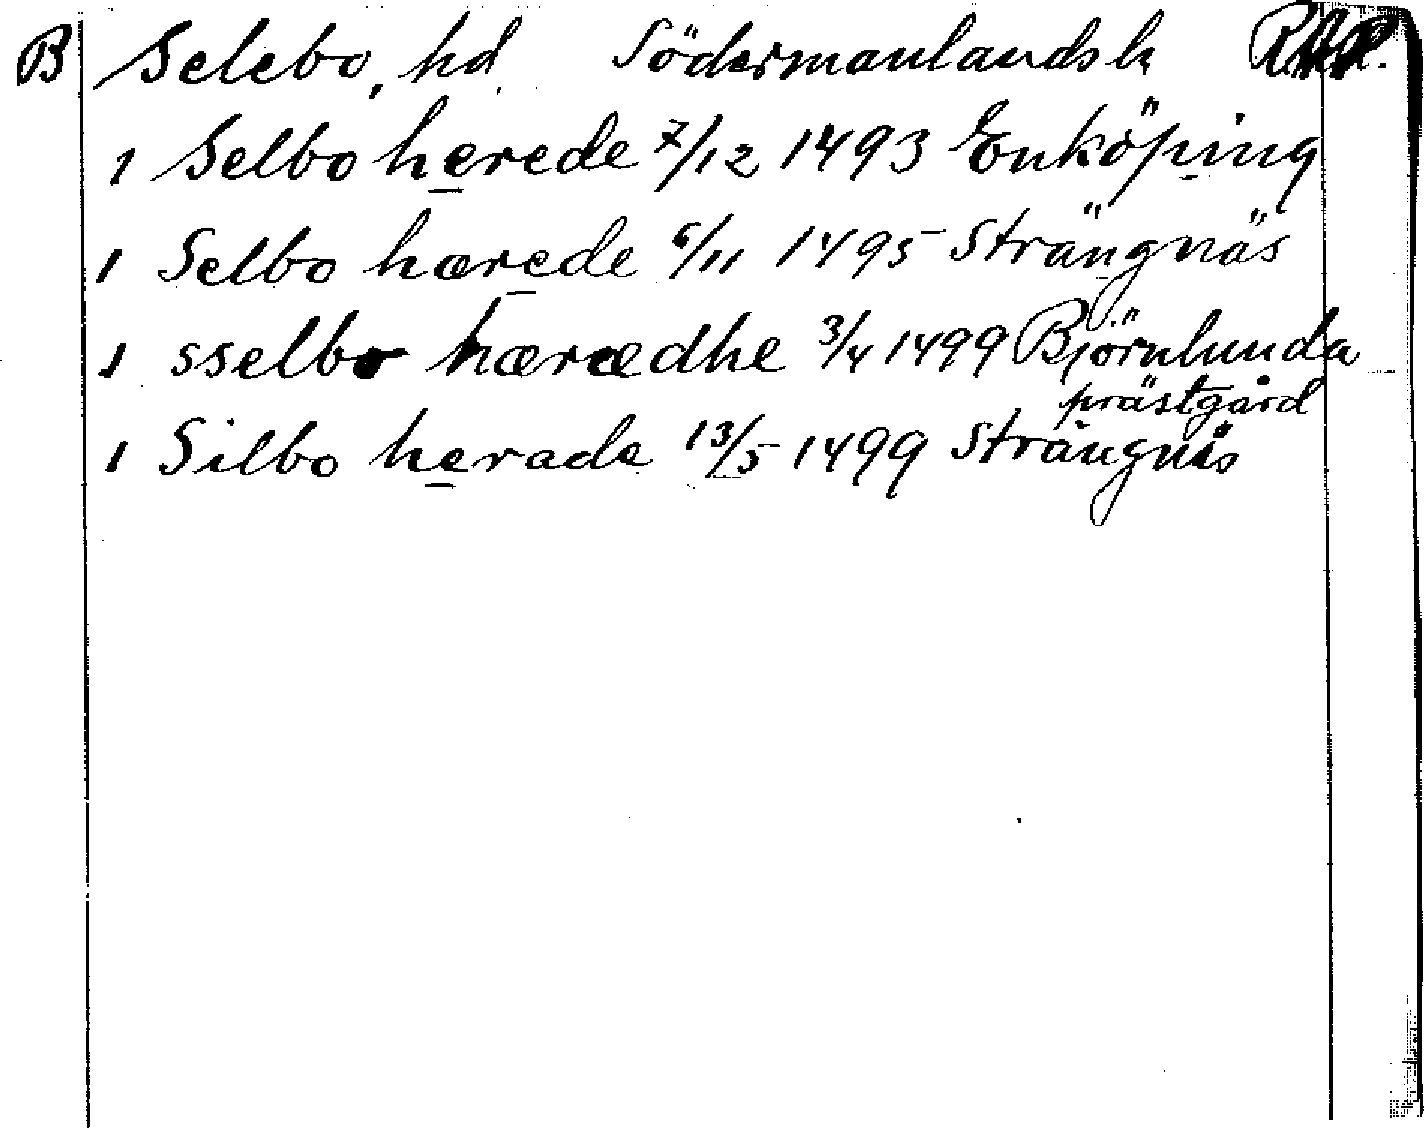 B Selebo, hd. Södermanlands l.
1 Selbo herede 7/12 1493 Enköping
1 Selbo hærede 6/11 1495 Strängnäs
1 sselbo hæredhe 3/4 1499 Björnlunda
prästgård
1 Silbo herade 13/5 1499 Strängnäs